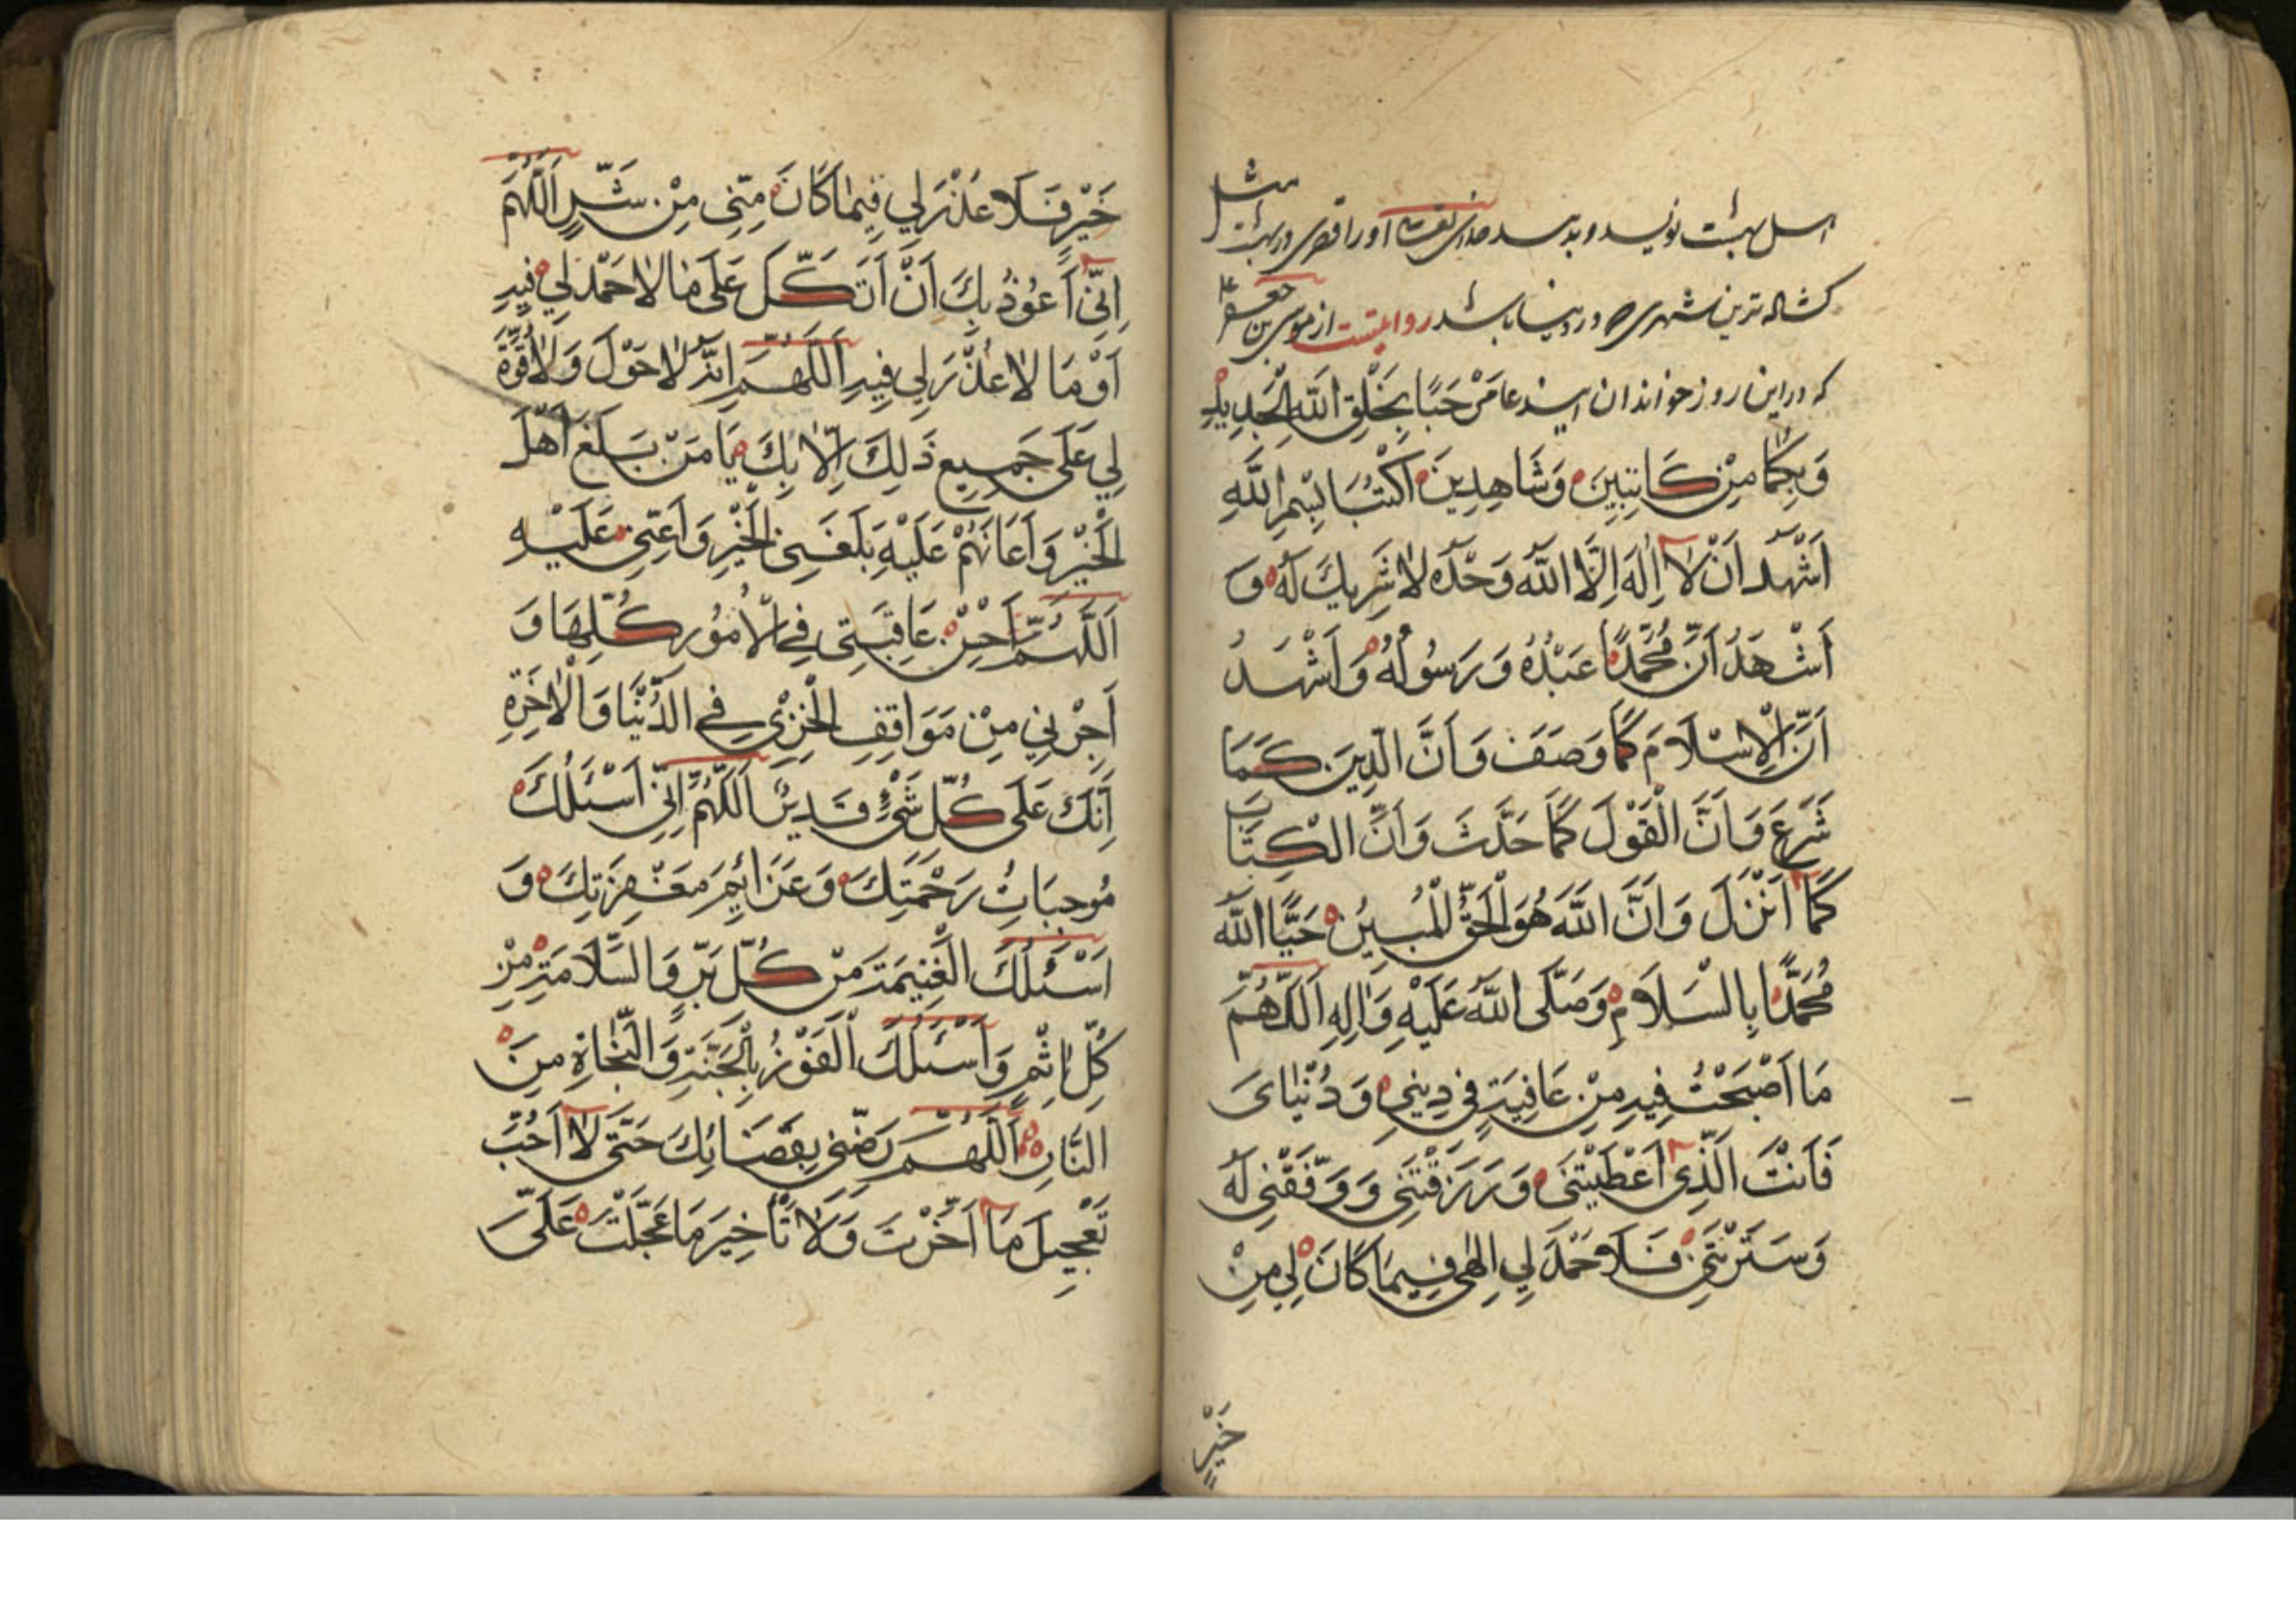 اهل بهشت نویسد و بدهد خدای تعالی او را قصری در بهشت مثل
کشاده‌ترین شهری که در دنیا باشد روایتست از موسی بن جعفر ع
که در این روز خواندن این دعا مَرْحَبًا بِخَلْقِ اللّهِ الْجَدِیدِ
وَبِکُمَا مِنْ کَاتِبَیْنِ وَشَاهِدِینَ اَکْتُبَا بِسْمِ اللَّهِ
اَشْهَدُ اَنْ لَا اِلٰهَ اِلَّا اللّٰهُ وَحْدَهُ لَا شَرِیكَ لَهُ وَ
اَشْهَدُ اَنَّ مُحَمَّدًا عَبْدُهُ وَرَسُولُهُ وَاَشْهَدُ
اَنَّ الْاِسْلَامَ کَمَا وَصَفَ وَاَنَّ الدِّینَ کَمَا
شَرَعَ وَاَنَّ الْقَوْلَ کَمَا حَدَّثَ وَاَنَّ الْکِتَابَ
کَمَا اَنْزَلَ وَاَنَّ اللّٰهَ هُوَ الْحَقُّ الْمُبِینُ حَیَّا اللّٰهُ
مُحَمَّدًا بِالسَّلَامِ وَصَلَّى اللّٰهُ عَلَیْهِ وَاٰلِهِ اَللّٰهُمَّ
مَا اَصْبَحْتُ فِیهِ مِنْ عَافِیَةٍ فِی دِینِی وَدُنْیَایَ
فَاَنْتَ الَّذِی اَعْطَیْتَنِی وَرَزَقْتَنِی وَوَفَّقْتَنِی لَهُ
وَسَتَرْتَنِی فَلَا حَمْدَ لِی اِلٰهِی فِیمَا کَانَ لِی مِنْ
خَیْرٍ
خَیْرٍ فَلَا عُذْرَ لِی فِیمَا کَانَ مِنِّی مِنْ شَرٍّ اَللّٰهُمَّ
اِنِّی اَعُوذُ بِكَ اَنْ اَتَّکِلَ عَلَى مَا لَا حَمْدَ لِی فِیهِ
اَوْ مَا لَا عُذْرَ لِی فِیهِ اَللّٰهُمَّ اِنَّهُ لَا حَوْلَ وَلَا قُوَّةَ
لِی عَلَى جَمِیعِ ذٰلِكَ اِلَّا بِكَ یَا مَنْ بَلَغَ اَهْلَ
الْخَیْرِ وَاَعَانَهُمْ عَلَیْهِ بَلِّغْنِی الْخَیْرَ وَاَعِنِّی عَلَیْهِ
اَللّٰهُمَّ اَحْسِنْ عَاقِبَتِی فِی الْاُمُورِ کُلِّهَا وَ
اَجِرْنِی مِنْ مَوَاقِفِ الْخِزْیِ فِی الدُّنْیَا وَالْاٰخِرَةِ
اِنَّكَ عَلَى کُلِّ شَیْءٍ قَدِیرٌ اَللّٰهُمَّ اِنِّی اَسْئَلُكَ
مُوجِبَاتِ رَحْمَتِكَ وَعَزَائِمَ مَغْفِرَتِكَ وَ
اَسْئَلُكَ الْغَنِیمَةَ مِنْ کُلِّ بِرٍّ وَالسَّلَامَةَ مِنْ
کُلِّ اِثْمٍ وَاَسْئَلُكَ الْفَوْزَ بِالْجَنَّةِ وَالنَّجَاةَ مِنَ
النَّارِ اَللّٰهُمَّ رَضِّنِی بِقَضَائِكَ حَتَّى لَا اُحِبَّ
تَعْجِیلَ مَا اَخَّرْتَ وَلَا تَأْخِیرَ مَا عَجَّلْتَ عَلَیَّ